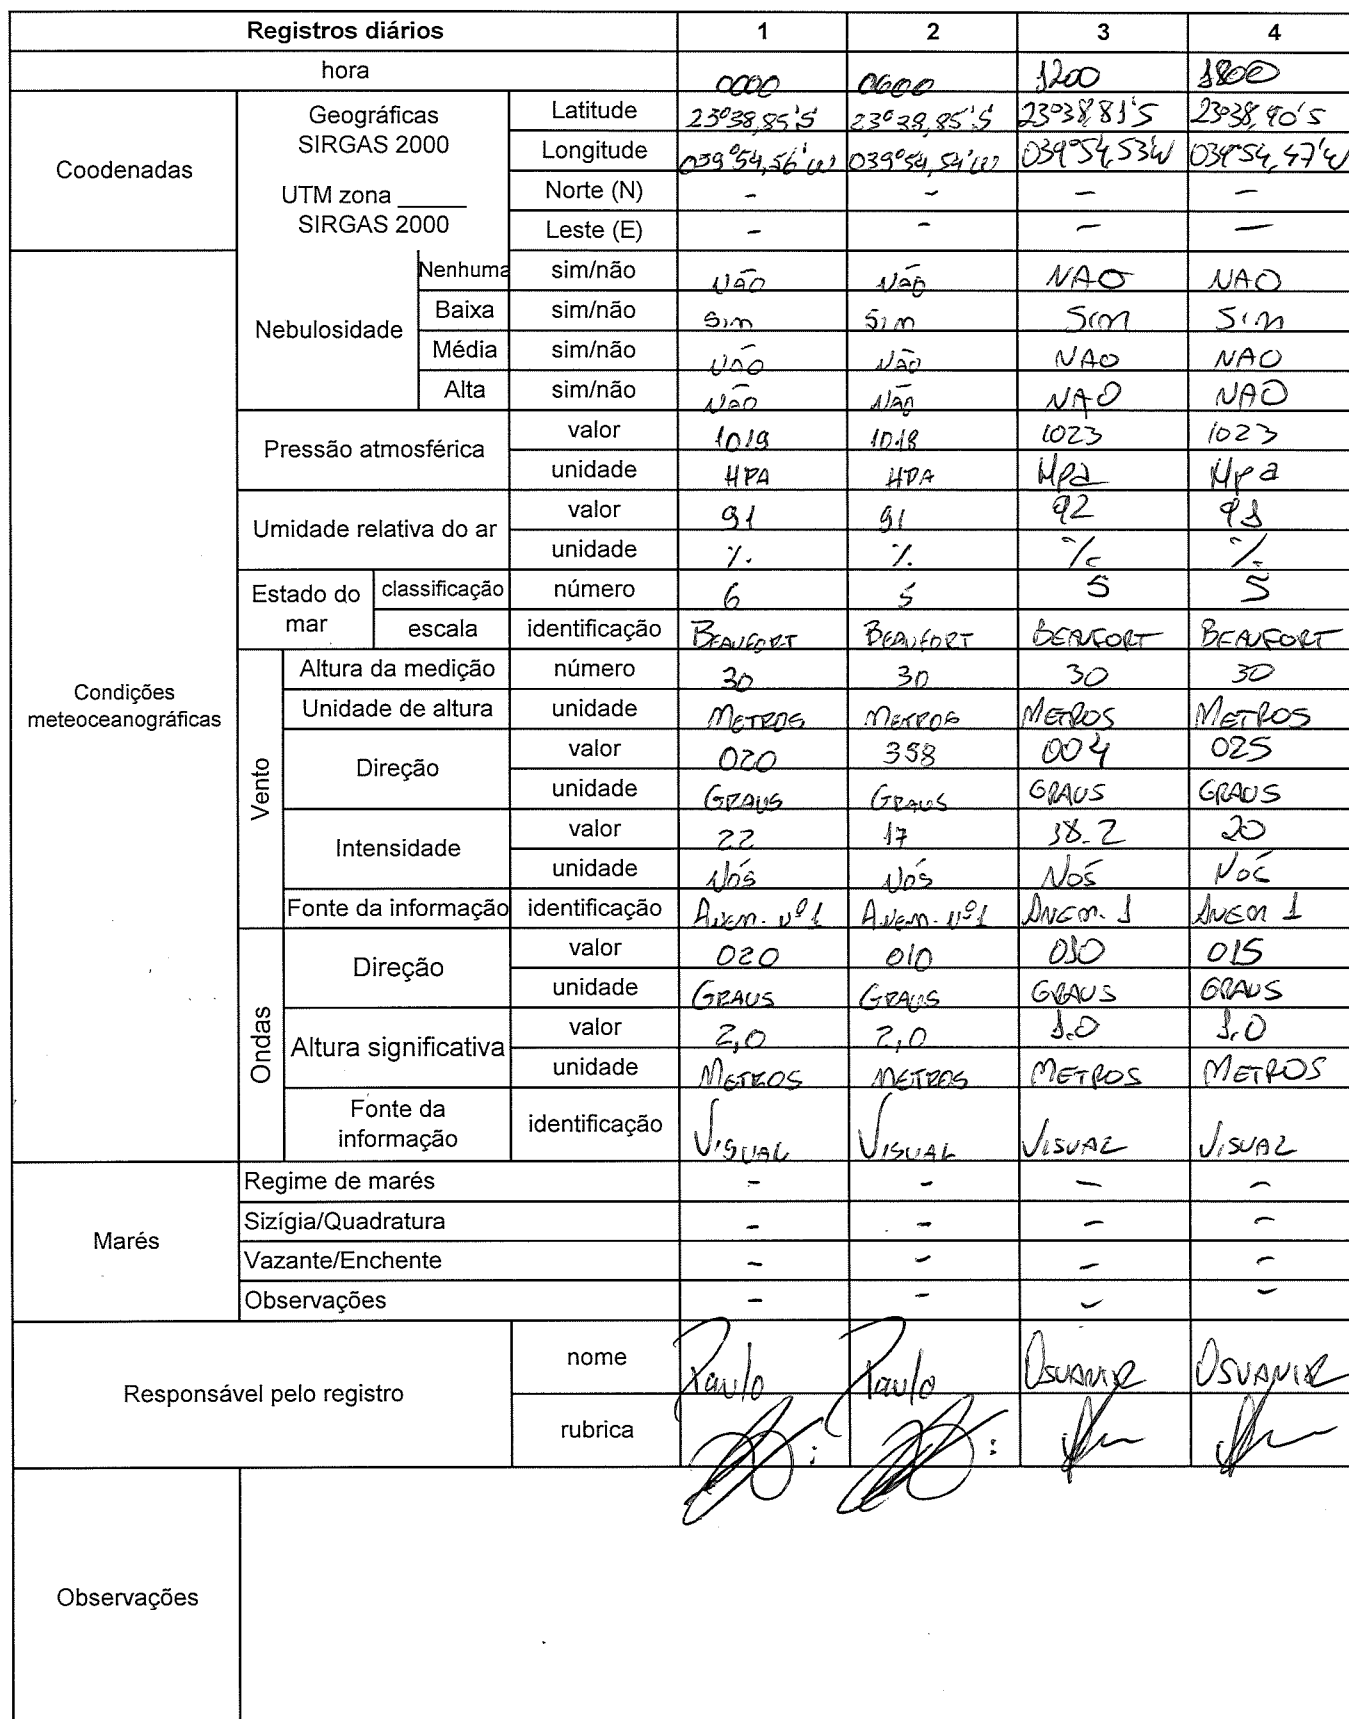 Registros diários 1 2 3 4
hora 0000 0600 1200 1800
Coodenadas
Geográficas
SIRGAS 2000
UTM zona _____
SIRGAS 2000
Latitude 23°38,85'S 23°38,85'S 23°38,81'S 23°38,90'S
Longitude 039°54,56'W 039°54,54'W 039°54,53W 039°54,47'W
Norte (N) - - - -
Leste (E) - - - -
Condições
meteoceanográficas
Nebulosidade
Nenhuma sim/não Não Não NAO NAO
Baixa sim/não Sim Sim Sim Sim
Média sim/não Não Não NAO NAO
Alta sim/não Não Não NAO NAO
Pressão atmosférica
valor 1019 1018 1023 1023
unidade HPA HPA Hpa Hpa
Umidade relativa do ar
valor 91 91 92 91
unidade % % % %
Estado do
mar
classificação número 6 5 5 5
escala identificação BEAUFORT BEAUFORT BEAUFORT BEAUFORT
Vento
Altura da medição número 30 30 30 30
Unidade de altura unidade METROS METROS METROS METROS
Direção
valor 020 358 004 025
unidade GRAUS GRAUS GRAUS GRAUS
Intensidade
valor 22 17 18.2 20
unidade Nós Nós Nós Nós
Fonte da informação identificação Anem. nº1 Anem. nº1 Anem. 1 Anem 1
Ondas
Direção
valor 020 010 010 015
unidade GRAUS GRAUS GRAUS GRAUS
Altura significativa
valor 2,0 2,0 1.0 1.0
unidade METROS METROS METROS METROS
Fonte da
informação
identificação VISUAL VISUAL VISUAL VISUAL
Marés
Regime de marés - - - -
Sizígia/Quadratura - - - -
Vazante/Enchente - - - -
Observações - - - -
Responsável pelo registro
nome Paulo Paulo OSVANIR OSVANIR
rubrica
Observações